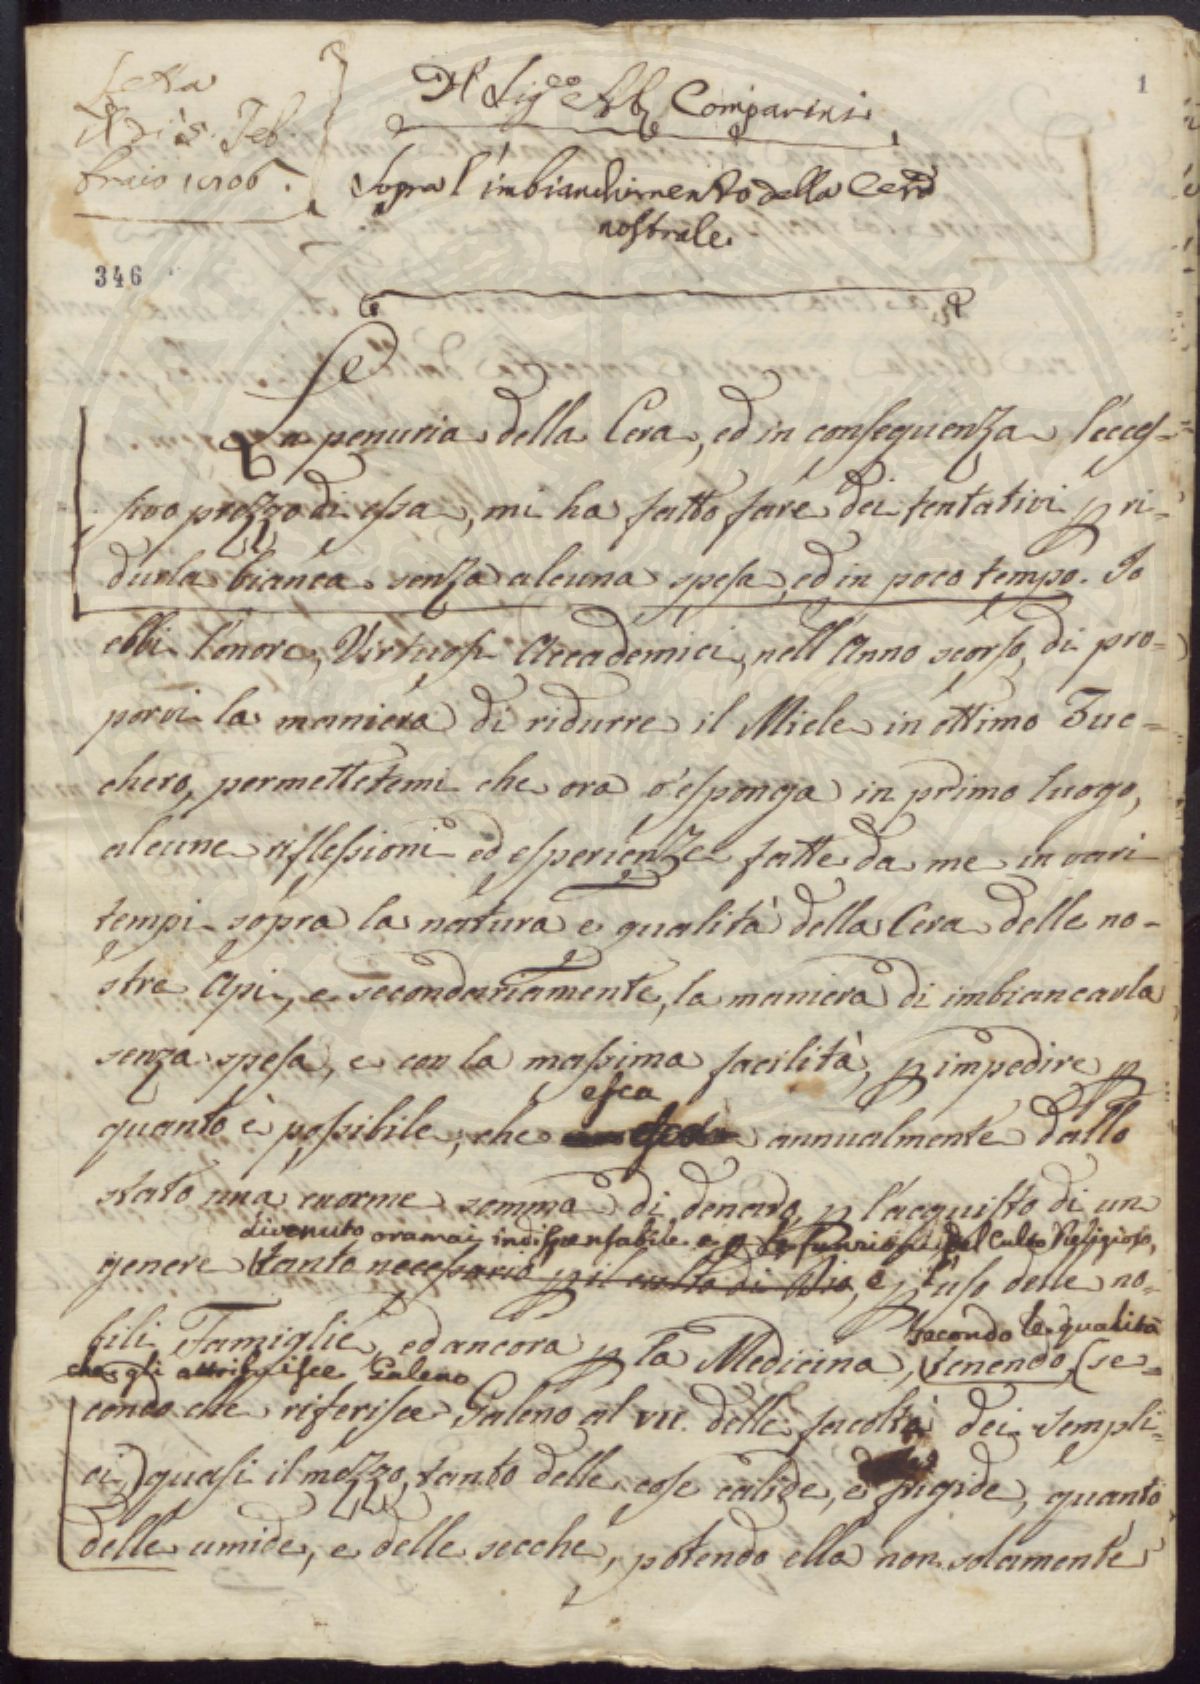 1
Letta
il dì 5. Feb
braio 1806.
Del Sigre Ab. Comparini
Sopra l'imbianchimento della Cera
nostrale.
346
Se
La penuria della Cera, ed in conseguenza l'ecces=
sivo prezzo di essa, mi ha fatto fare dei tentativi p ri=
durla bianca senza alcuna spesa, ed in poco tempo. Io
ebbi l'onore, Virtuosi Accademici, nell'Anno scorso, di pro=
porvi la maniera di ridurre il Miele in ottimo Zuc=
chero, permettetemi che ora v'esponga in primo luogo,
alcune riflessioni ed esperienze fatte da me in vari
tempi sopra la natura e qualità della Cera delle no=
stre Api, e secondariamente, la maniera di imbiancarla
senza spesa, e con la massima facilità, p impedire p
esca
quanto è possibile, che annualmente dallo
stato una enorme somma di denaro, p l'acquisto di un
divenuto oramai indispensabile e p le funzioni del Culto Religioso,
genere tanto necessario p il culto di Dio, e p l'uso delle no=
bili Famiglie, ed ancora p la Medicina, tenendo, (se=
secondo le qualità
che gli attribuisce Galeno
condo che riferisce Galeno al VII. delle facoltà dei sempli=
ci) quasi il mezzo, tanto delle cose calide, e frigide, quanto
delle umide, e delle secche, potendo ella non solamente